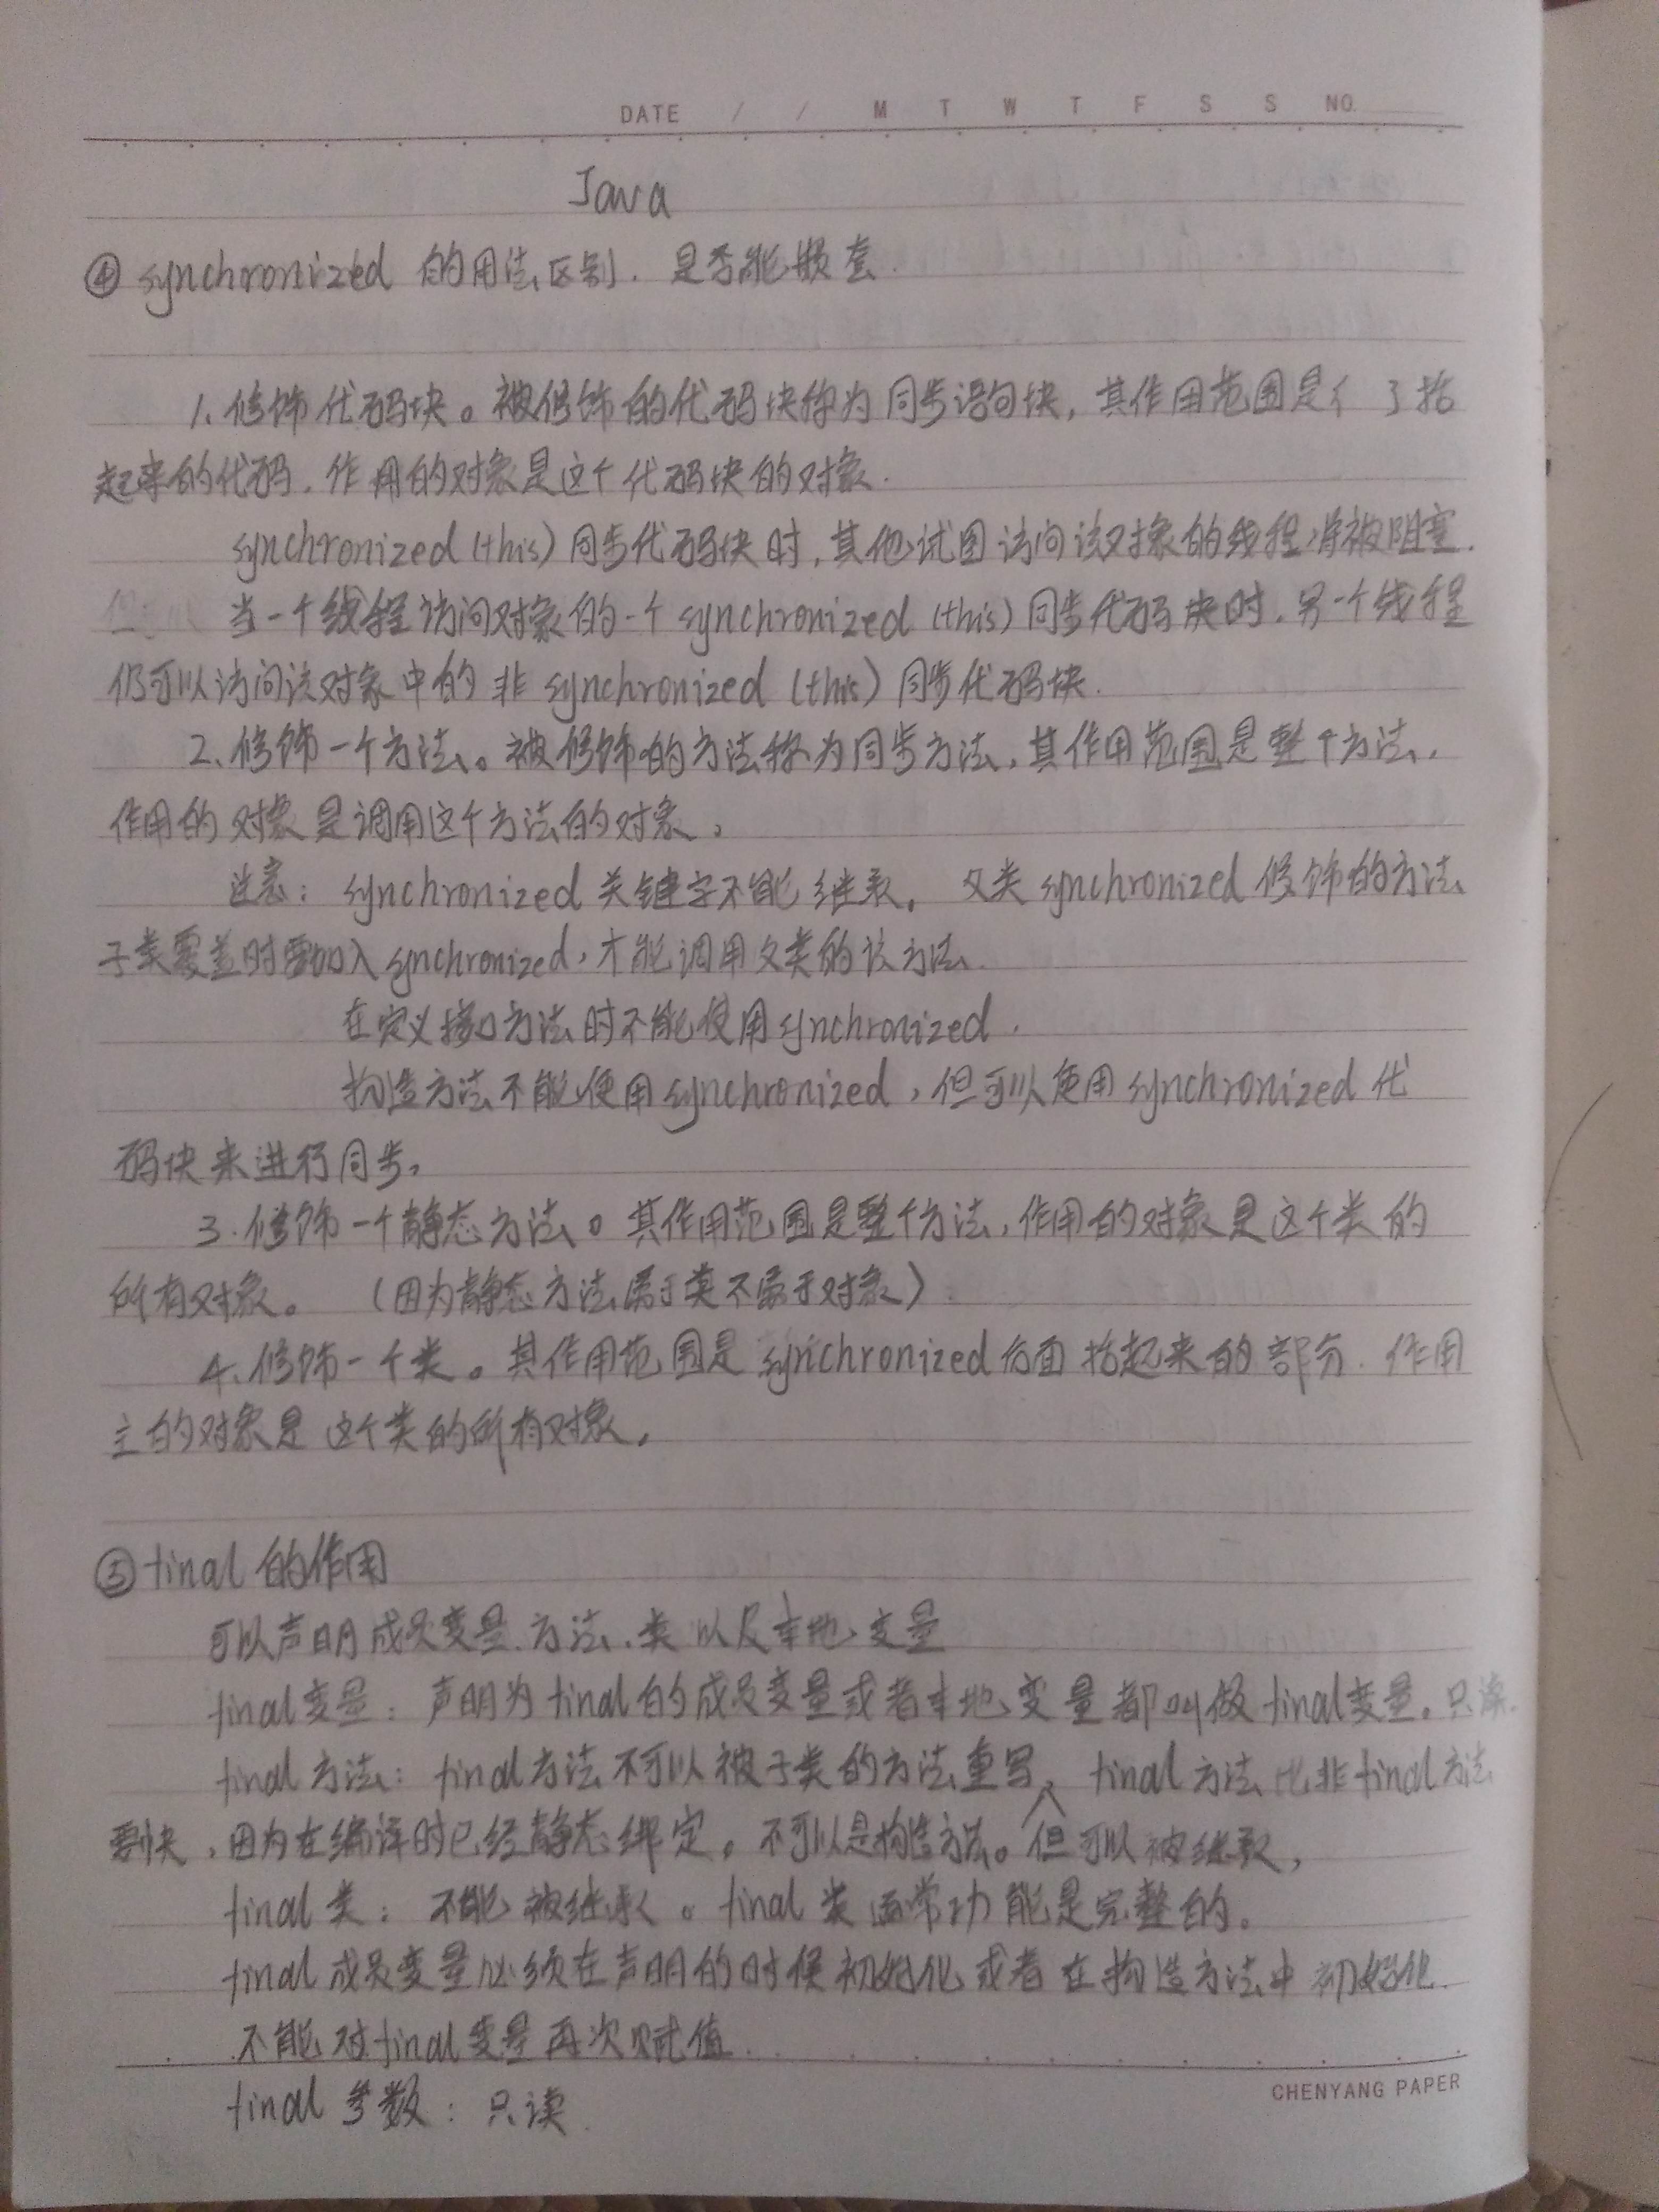 DATE / / M T W T F S S NO.
Java
④ synchronized 的用法区别. 是否能嵌套.
1. 修饰代码块。被修饰的代码块称为同步语句块, 其作用范围是{ }括
起来的代码. 作用的对象是这个代码块的对象.
synchronized (this) 同步代码块时, 其他试图访问该对象的线程将被阻塞.
当一个线程访问对象的一个 synchronized (this) 同步代码块时. 另一个线程
仍可以访问该对象中的非 synchronized (this) 同步代码块.
2. 修饰一个方法。被修饰的方法称为同步方法, 其作用范围是整个方法,
作用的对象是调用这个方法的对象。
注意: synchronized 关键字不能继承。父类 synchronized 修饰的方法
子类覆盖时要加入 synchronized, 才能调用父类的该方法.
在定义接口方法时不能使用 synchronized.
构造方法不能使用 synchronized, 但可以使用 synchronized 代
码块来进行同步,
3. 修饰一个静态方法。其作用范围是整个方法, 作用的对象是这个类的
所有对象。 (因为静态方法属于类不属于对象)
4. 修饰一个类。其作用范围是 synchronized 后面括起来的部分. 作用
主的对象是这个类的所有对象,
⑤ final 的作用
可以声明成员变量、方法、类以及本地变量
final变量: 声明为final的成员变量或者本地变量都叫做final变量。只读.
final方法: final方法不可以被子类的方法重写, final方法比非final方法
要快, 因为在编译时已经静态绑定。不可以是构造方法。但可以被继承,
final类: 不能被继承。final类通常功能是完整的。
final成员变量必须在声明的时候初始化或者在构造方法中初始化.
不能对final变量再次赋值.
final 参数: 只读.
CHENYANG PAPER